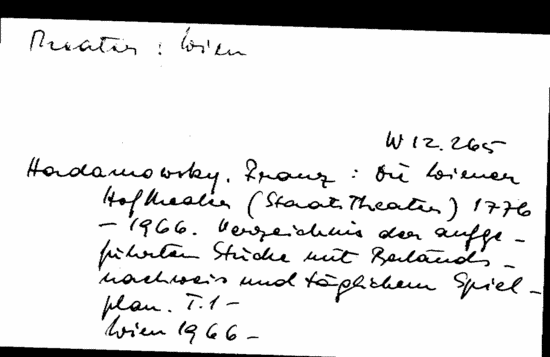 Theater : Wien
W 12.265
Hadamowsky, Franz : Die Wiener
Hoftheater (Staatstheater) 1776
– 1966. Verzeichnis der aufge –
führten Stücke mit Bestands –
nachweis und täglichem Spiel –
plan. T.1 –
Wien 1966 –